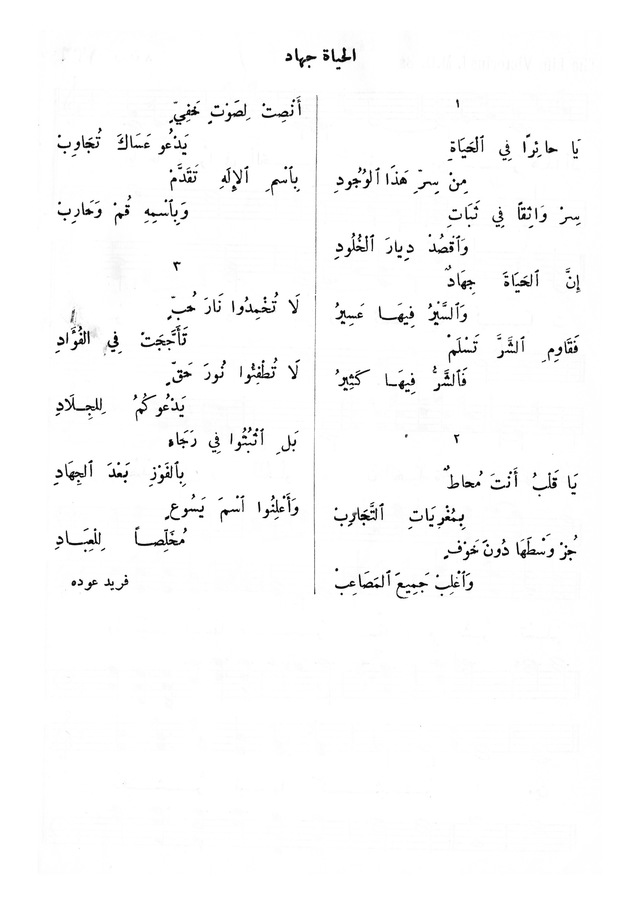 الحياة جهاد
١
يَا حَائِرًا فِي ٱلْحَيَاةِ
مِنْ سِرِّ هٰذَا ٱلوُجُودِ
سِرْ وَاثِقاً فِي ثَبَاتِ
وَٱقْصُدْ دِيَارَ ٱلْخُلُودِ
إِنَّ ٱلْحَيَاةَ جِهَادٌ
وَٱلسَّيْرُ فِيهَا عَسِيرُ
فَقَاوِمِ ٱلشَّرَّ تَسْلَمْ
فَٱلشَّرُّ فِيهَا كَثِيرُ
٢
يَا قَلْبُ أَنْتَ مُحَاطٌ
بِمُغْرِيَاتِ ٱلتَّجَارِبْ
جُزْ وَسْطَهَا دُونَ خَوْفٍ
وَٱغْلِبْ جَمِيعَ ٱلمَصَاعِبْ
أَنْصِتْ لِصَوْتٍ خَفِيٍّ
يَدْعُو عَسَاكَ تُجَاوِبْ
بِٱسْمِ ٱلإِلٰهِ تَقَدَّمْ
وَبِٱسْمِهِ قُمْ وَحَارِبْ
٣
لَا تُخْمِدُوا نَارَ حُبٍّ
تَأَجَّجَتْ فِي ٱلفُؤَادِ
لَا تُطْفِئُوا نُورَ حَقٍّ
يَدْعُوكُمُ لِلجِلَادِ
بَلِ ٱثْبُتُوا فِي رَجَاءٍ
بِٱلفَوْزِ بَعْدَ ٱلجِهَادِ
وَأَعْلِنُوا ٱسْمَ يَسُوعٍ
مُخَلِّصاً لِلْعِبَادِ
فريد عوده